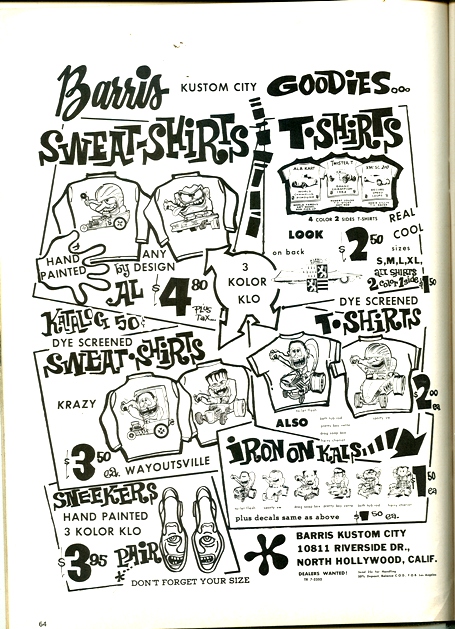 Barris KUSTOM CITY GOODiES...
SWEAT-SHiRTS
T-SHiRTS
4 COLOR 2 SIDES T-SHIRTS
LOOK
on back
$2 50
REAL
COOL
sizes
S,M,L,XL,
ALL SHIRTS
2 color 1 side $1 50
HAND
PAINTED
ANY
DESIGN
by
AL
$4 80
Plus
Tax
3
KOLOR
KLO
KATALOG 50¢
DYE SCREENED
SWEAT-SHIRTS
KRAZY
$3 50
ea. WAYOUTSVILLE
DYE SCREENED
T-SHiRTS
$2 00
ea
ALSO
iRON ON KALS
$1 50
ea
plus decals same as above
50 ea.
SNEEKERS
HAND PAINTED
3 KOLOR KLO
$3 95 PAiR
*DON'T FORGET YOUR SIZE
BARRIS KUSTOM CITY
10811 RIVERSIDE DR.,
NORTH HOLLYWOOD, CALIF.
DEALERS WANTED!
64